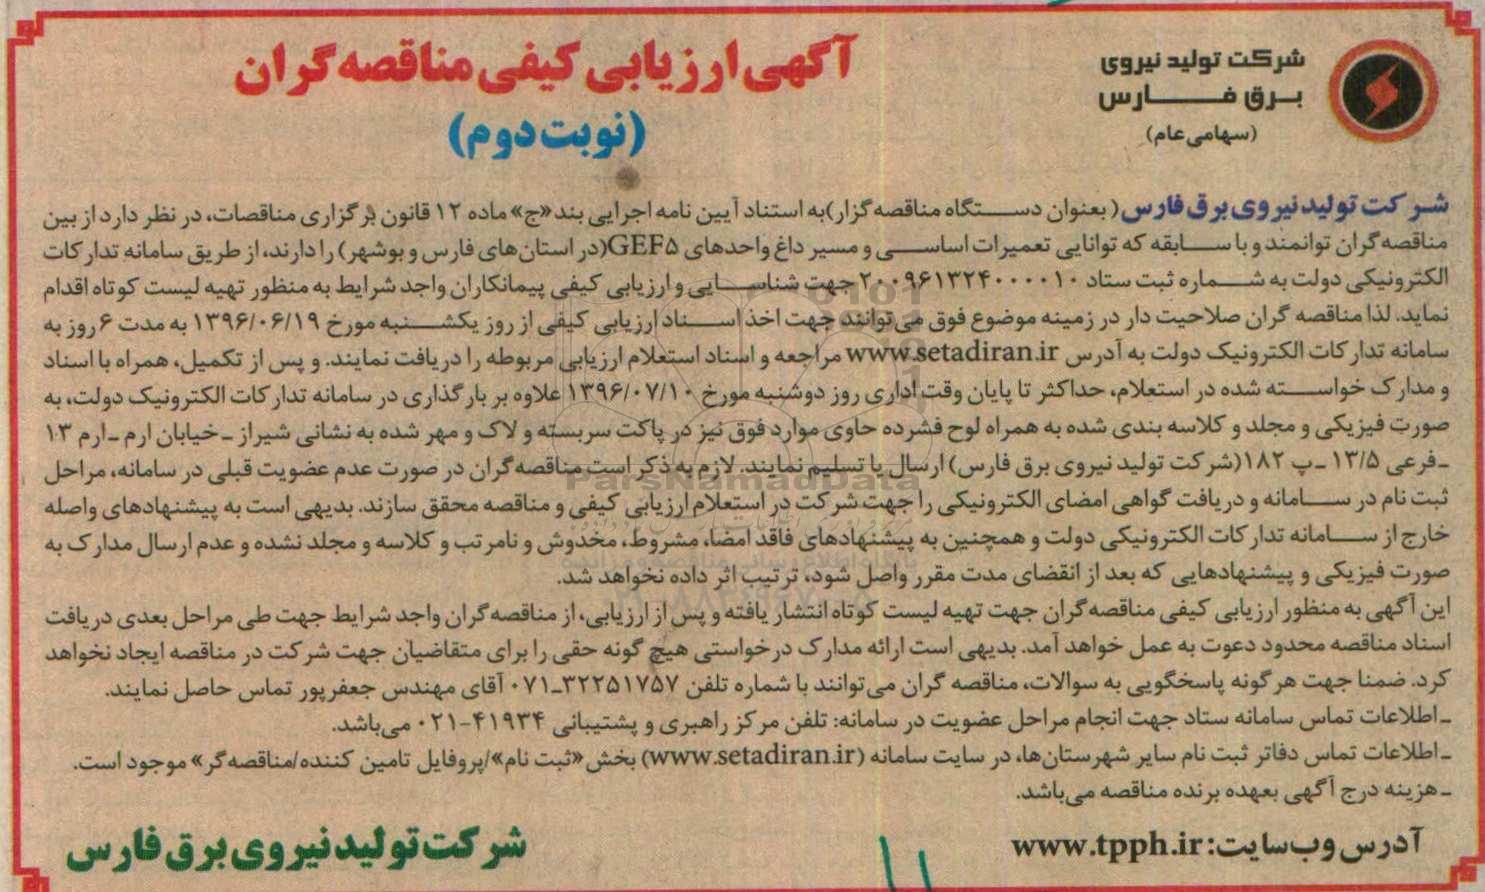 شرکت تولید نیروی
برق فارس
(سهامی عام)
آگهی ارزیابی کیفی مناقصه گران
(نوبت دوم)
شرکت تولید نیروی برق فارس (بعنوان دستگاه مناقصه گزار) به استناد آیین نامه اجرایی بند «ج» ماده ۱۲ قانون برگزاری مناقصات، در نظر دارد از بین
مناقصه گران توانمند و با سابقه که توانایی تعمیرات اساسی و مسیر داغ واحدهای GEF۵ (در استان های فارس و بوشهر) را دارند، از طریق سامانه تدارکات
الکترونیکی دولت به شماره ثبت ستاد ۲۰۰۹۶۱۳۲۴۰۰۰۰۱۰ جهت شناسایی و ارزیابی کیفی پیمانکاران واجد شرایط به منظور تهیه لیست کوتاه اقدام
نماید. لذا مناقصه گران صلاحیت دار در زمینه موضوع فوق می توانند جهت اخذ اسناد ارزیابی کیفی از روز یکشنبه مورخ ۱۳۹۶/۰۶/۱۹ به مدت ۶ روز به
سامانه تدارکات الکترونیک دولت به آدرس www.setadiran.ir مراجعه و اسناد استعلام ارزیابی مربوطه را دریافت نمایند. و پس از تکمیل، همراه با اسناد
و مدارک خواسته شده در استعلام، حداکثر تا پایان وقت اداری روز دوشنبه مورخ ۱۳۹۶/۰۷/۱۰ علاوه بر بارگذاری در سامانه تدارکات الکترونیک دولت، به
صورت فیزیکی و مجلد و کلاسه بندی شده به همراه لوح فشرده حاوی موارد فوق نیز در پاکت سربسته و لاک و مهر شده به نشانی شیراز ـ خیابان ارم ـ ارم ۱۳
ـ فرعی ۱۳/۵ ـ پ ۱۸۲ (شرکت تولید نیروی برق فارس) ارسال یا تسلیم نمایند. لازم به ذکر است مناقصه گران در صورت عدم عضویت قبلی در سامانه، مراحل
ثبت نام در سامانه و دریافت گواهی امضای الکترونیکی را جهت شرکت در استعلام ارزیابی کیفی و مناقصه محقق سازند. بدیهی است به پیشنهادهای واصله
خارج از سامانه تدارکات الکترونیکی دولت و همچنین به پیشنهادهای فاقد امضا، مشروط، مخدوش و نامرتب و کلاسه و مجلد نشده و عدم ارسال مدارک به
صورت فیزیکی و پیشنهادهایی که بعد از انقضای مدت مقرر واصل شود، ترتیب اثر داده نخواهد شد.
این آگهی به منظور ارزیابی کیفی مناقصه گران جهت تهیه لیست کوتاه انتشار یافته و پس از ارزیابی، از مناقصه گران واجد شرایط جهت طی مراحل بعدی دریافت
اسناد مناقصه محدود دعوت به عمل خواهد آمد. بدیهی است ارائه مدارک درخواستی هیچ گونه حقی را برای متقاضیان جهت شرکت در مناقصه ایجاد نخواهد
کرد. ضمنا جهت هرگونه پاسخگویی به سوالات، مناقصه گران می توانند با شماره تلفن ۳۲۲۵۱۷۵۷ـ۰۷۱ آقای مهندس جعفرپور تماس حاصل نمایند.
ـ اطلاعات تماس سامانه ستاد جهت انجام مراحل عضویت در سامانه: تلفن مرکز راهبری و پشتیبانی ۴۱۹۳۴-۰۲۱ می باشد.
ـ اطلاعات تماس دفاتر ثبت نام سایر شهرستان ها، در سایت سامانه (www.setadiran.ir) بخش «ثبت نام»/پروفایل تامین کننده/مناقصه گر» موجود است.
ـ هزینه درج آگهی بعهده برنده مناقصه می باشد.
آدرس وب سایت: www.tpph.ir
شرکت تولید نیروی برق فارس
ParsNamadData